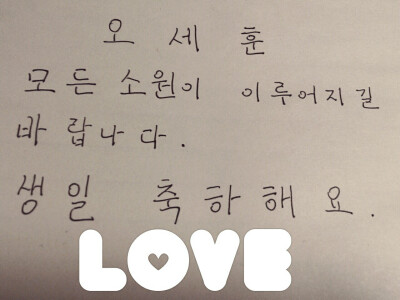 오 세 훈
모든 소원이 이루어지길
바랍나다.
생일 축하해요.
LOVE